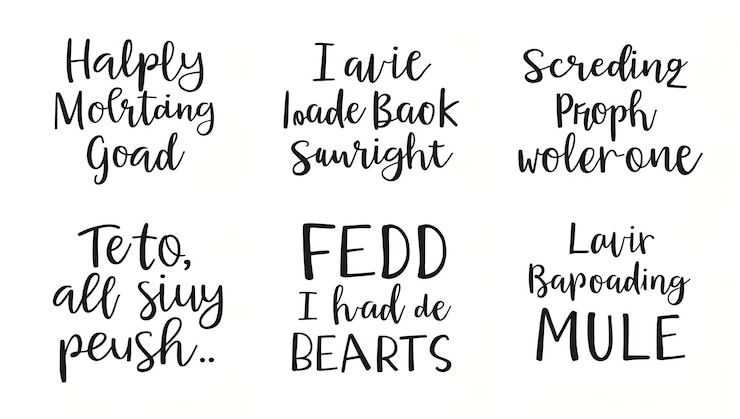 Halply
Molrtaing
Goad
I avie
loade Baok
Suuright
Scredinz
Proph
woler-one
Teto,
all siuy
peush..
FEDD
I had de
BEARTS
Lavir
Bapoading
MULE